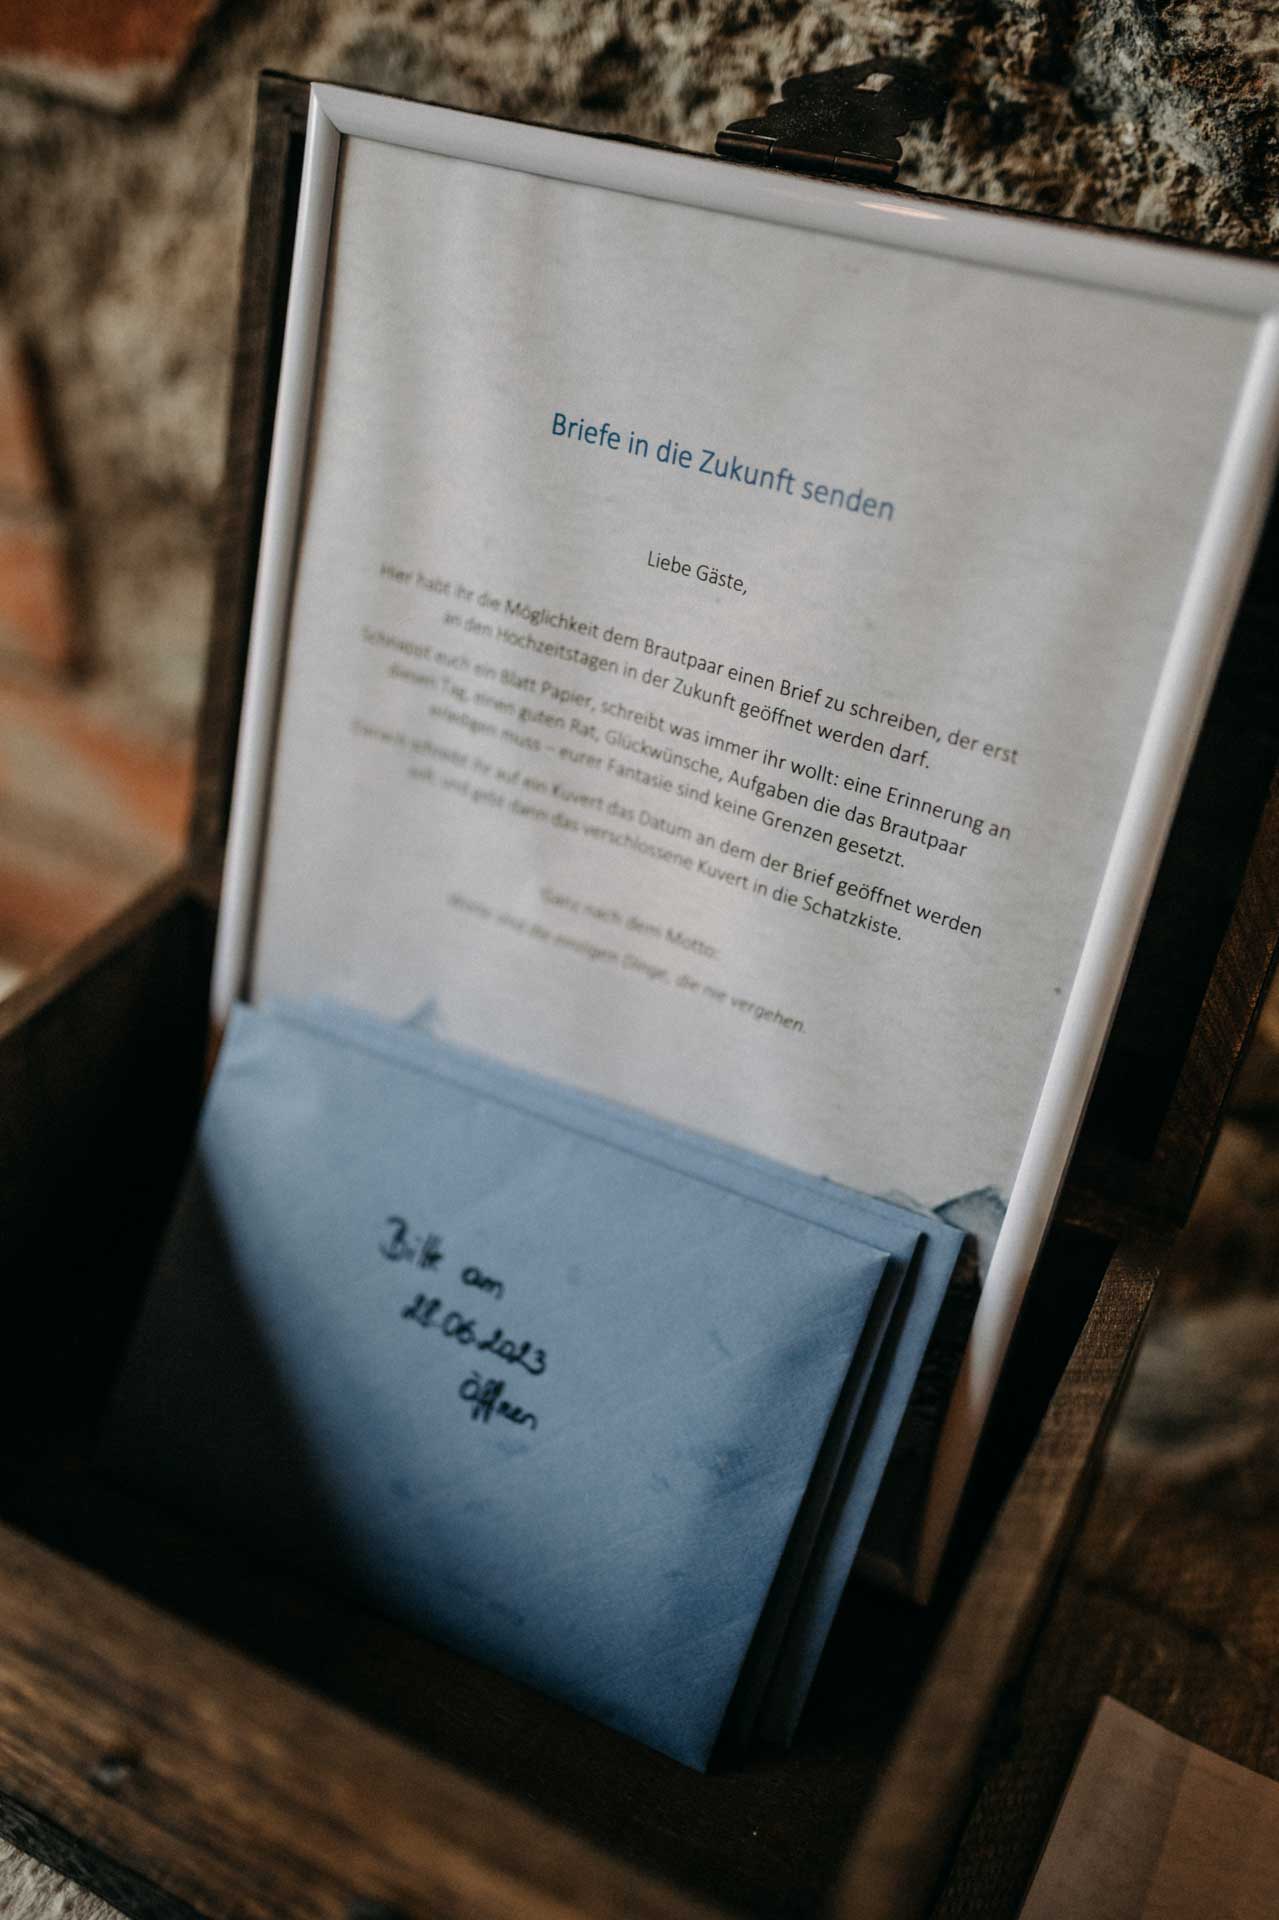 Briefe in die Zukunft senden
Liebe Gäste,
Hier habt ihr die Möglichkeit dem Brautpaar einen Brief zu schreiben, der erst
an den Hochzeitstagen in der Zukunft geöffnet werden darf.
Schnappt euch ein Blatt Papier, schreibt was immer ihr wollt: eine Erinnerung an
diesen Tag, einen guten Rat, Glückwünsche, Aufgaben die das Brautpaar
erledigen muss – eurer Fantasie sind keine Grenzen gesetzt.
schreibt ihr auf ein Kuvert das Datum an dem der Brief geöffnet werden
soll, und gebt dann das verschlossene Kuvert in die Schatzkiste.
Ganz nach dem Motto:
sind die einzigen Dinge, die nie vergehen.
Bitte am
28.06.2023
Öffnen